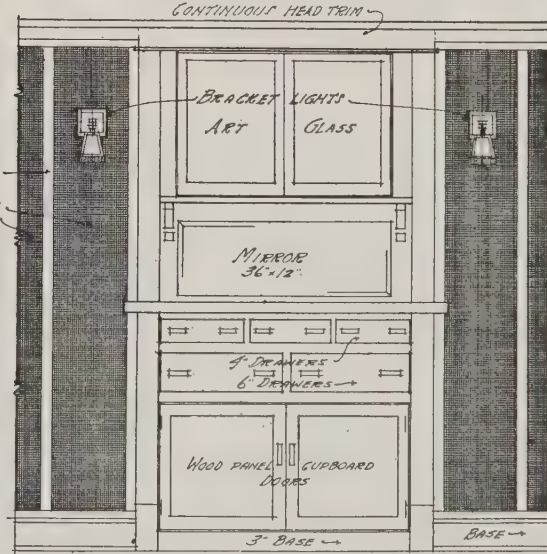 CONTINUOUS HEAD TRIM
BRACKET LIGHTS
ART GLASS
MIRROR
36"x12"
4" DRAWERS
6" DRAWERS
WOOD PANEL CUPBOARD
DOORS
3" BASE
BASE